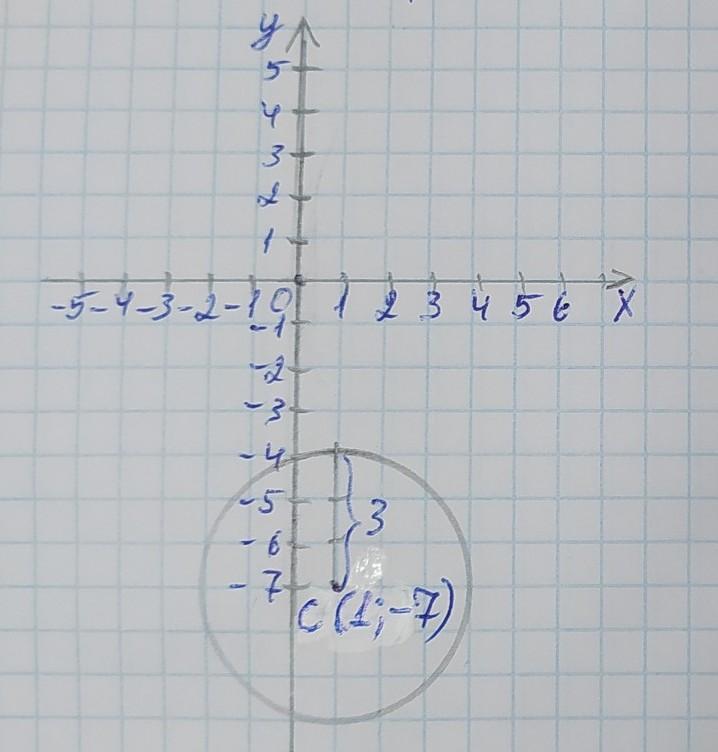 y
5
4
3
2
1
-5 -4 -3 -2 -1 0 1 2 3 4 5 6 X
-1
-2
-3
-4
-5
3
-6
-7
C(1;-7)